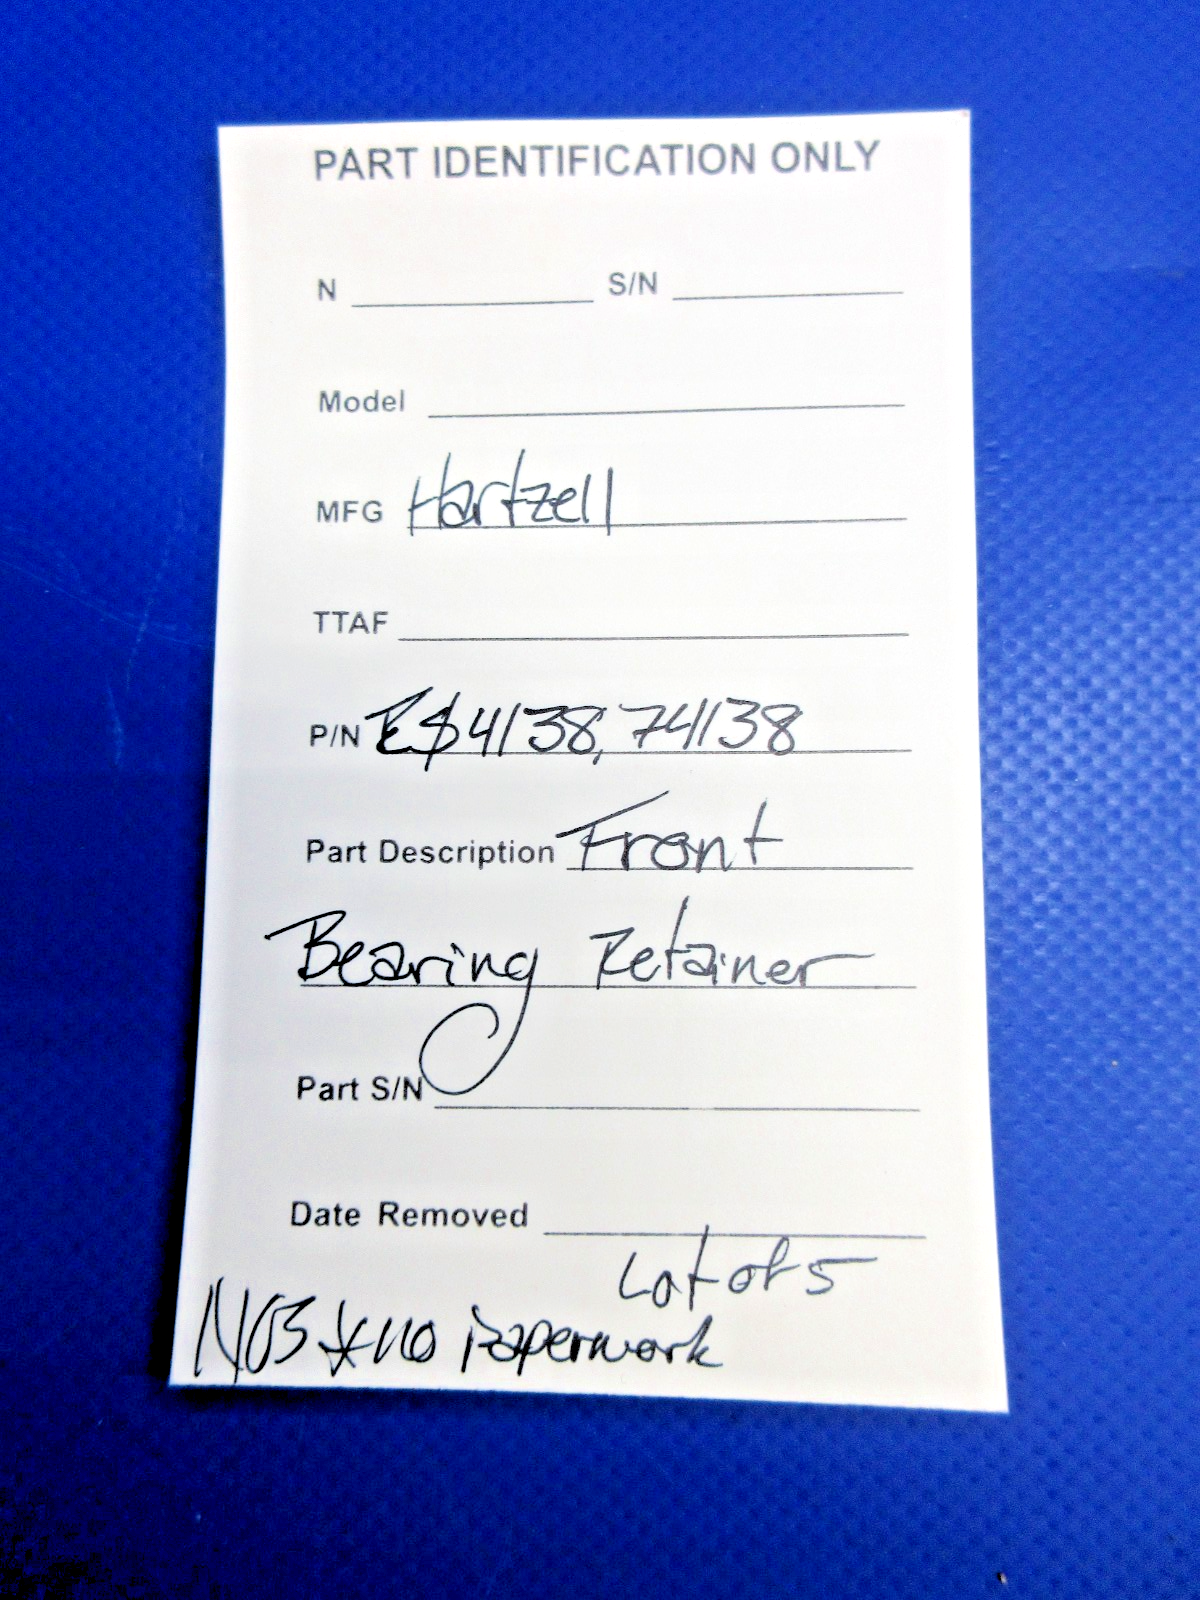 PART IDENTIFICATION ONLY
N S/N
Model
MFG Hartzell
TTAF
P/N E$4138, 74138
Part Description Front
Bearing Retainer
Part S/N
Date Removed
Lot of 5
NOS *no Paperwork